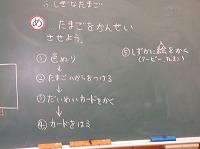 ふしぎなたまご
め たまごをかんせい
させよう。
① 色ぬり
↓
② たまごのからをつける
↓
③ だいめいカードをかく
↓
④ カードをはる
⑤ しずかに絵をかく